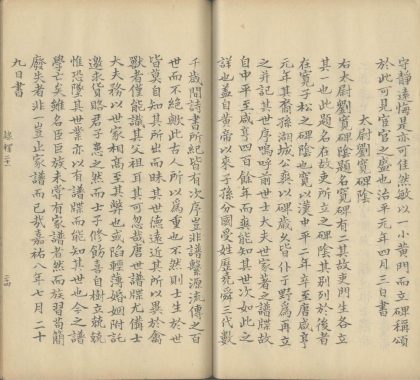 守靜遠悔是亦可佳然敏以一小黃門而立碑稱頌
於此可見宦官之盛也治平元年四月三日書
太尉劉寬碑陰
右太尉劉寬碑陰題名寬碑有二其故吏門生各立
其一也此題名在故吏所立之碑陰其別列於後者
在寬子松之碑陰也寬以漢中平二年卒至唐咸亨
元年其裔孫湖城公爽以碑歲久皆仆于野為再立
之并記其世序嗚呼前世士大夫世家著之譜牒故
自中平至咸亨四百餘年而爽能知其世次如此之
詳也蓋自黃帝以來子孫分國受姓歷堯舜三代數
千歲間詩書所紀皆有次序豈非譜繫源流傳之百
世而不絕歟此古人所以為重也不然則士生於世
皆莫自知其所出而昧其世德遠近其所以異於禽
獸者僅能識其父祖耳其可忽哉唐世譜牒尤備士
大夫務以世家相高至其弊也或陷輕薄婚姻附託
邀求貨賂君子患之然而士子修飭喜自樹立兢兢
惟恐墜其世業亦以有譜牒而能知其世也今之譜
學亡矣雖名臣巨族未嘗有家譜者然而俗習苟簡
廢失者非一豈止家譜而已哉嘉祐八年七月二十
九日書